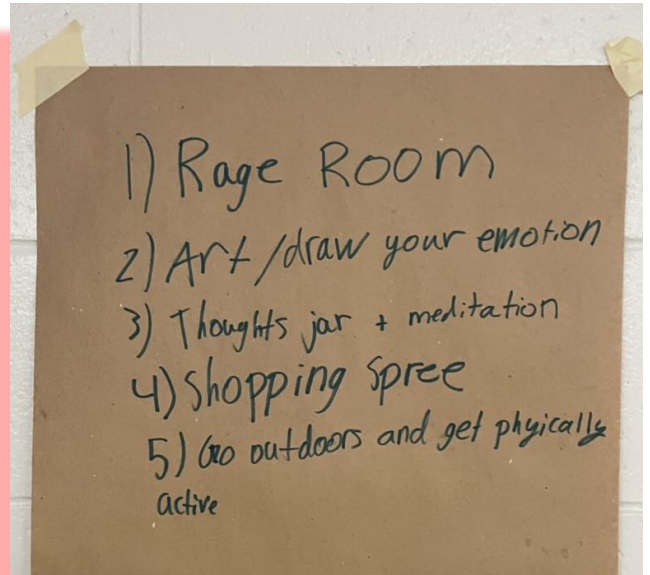 1) Rage Room
2) Art/draw your emotion
3) Thoughts jar + meditation
4) Shopping Spree
5) Go outdoors and get phyically
active